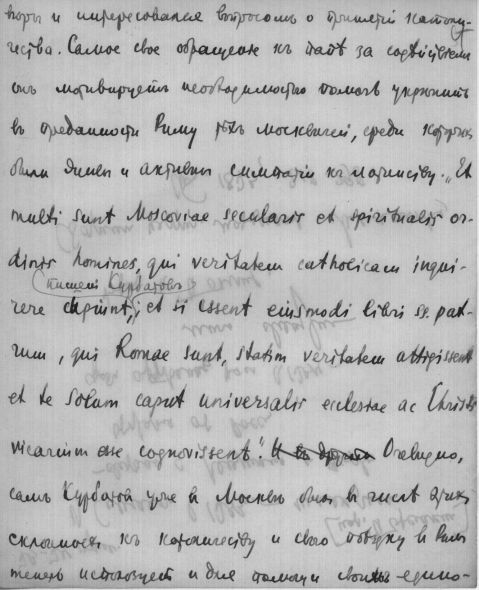 вѣры и интересовался вопросомъ о принятіи католи-
чества. Самое свое обращеніе къ папѣ за содѣйствіемъ
онъ мотивируетъ необходимостью помочь укрѣпить
въ преданности Риму тѣхъ москвичей, среди которыхъ
были живы и активны симпатіи къ латинству. „Et
multi sunt Moscoviae secularis et spiritualis or-
dinis homines, qui veritatem catholicam inqui-
(пишетъ Курбатовъ)
rere cupiunt, et si essent eiusmodi libri ss. pat-
rum, qui Romae sunt, statim veritatem attigissent
et te solum caput universalis ecclesiae ac Christi
vicarium esse cognovissent“. Очевидно,
самъ Курбатовъ уже въ Москвѣ былъ въ числѣ этихъ
склонныхъ къ католичеству и свою поѣздку въ Римъ
теперь использует и для помощи своимъ едино-